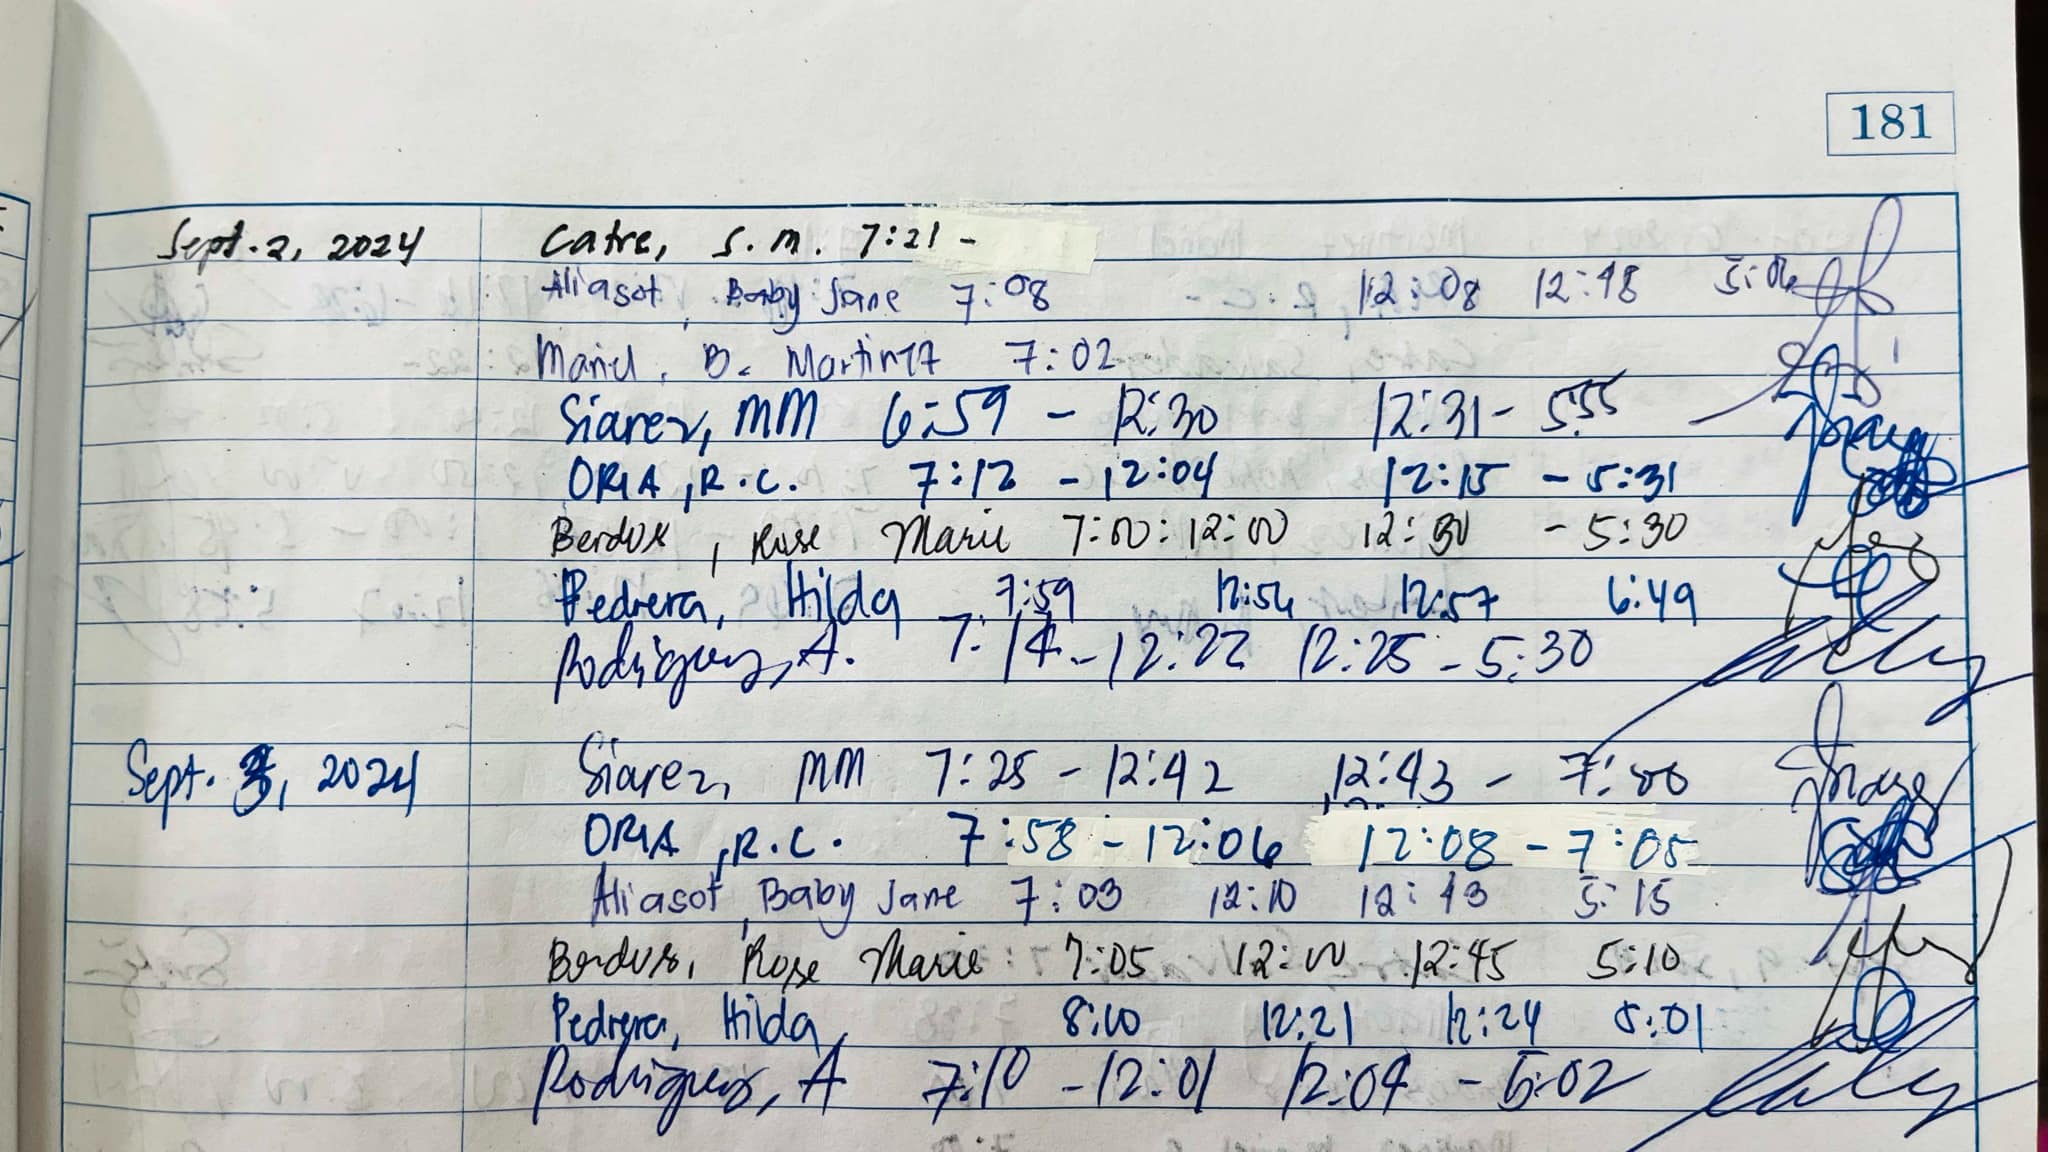 181
Sept. 2, 2024 Catre, S. M. 7:21 -
Aliasot, Baby Jane 7:08 12:08 12:48 5:06
Mariel, B. Martinez 7:02
Siarez, MM 6:59 - 12:30 12:31 - 5:55
ORIA, R.C. 7:12 - 12:04 12:15 - 5:31
Berdos, Rose Marie 7:00: 12:00 12:30 - 5:30
Pedrera, Hilda 7:59 12:54 12:57 6:49
Rodriguez, A. 7:14 - 12:22 12:25 - 5:30
Sept. 3, 2024 Siarez, MM 7:25 - 12:42 12:43 - 7:00
ORIA, R.C. 7:58 - 12:06 12:08 - 7:05
Aliasot, Baby Jane 7:03 12:10 12:43 5:15
Berdos, Rose Marie 7:05 12:00 12:45 5:10
Pedrera, Hilda 8:00 12:21 12:24 5:01
Rodriguez, A 7:10 - 12:01 12:04 - 5:02